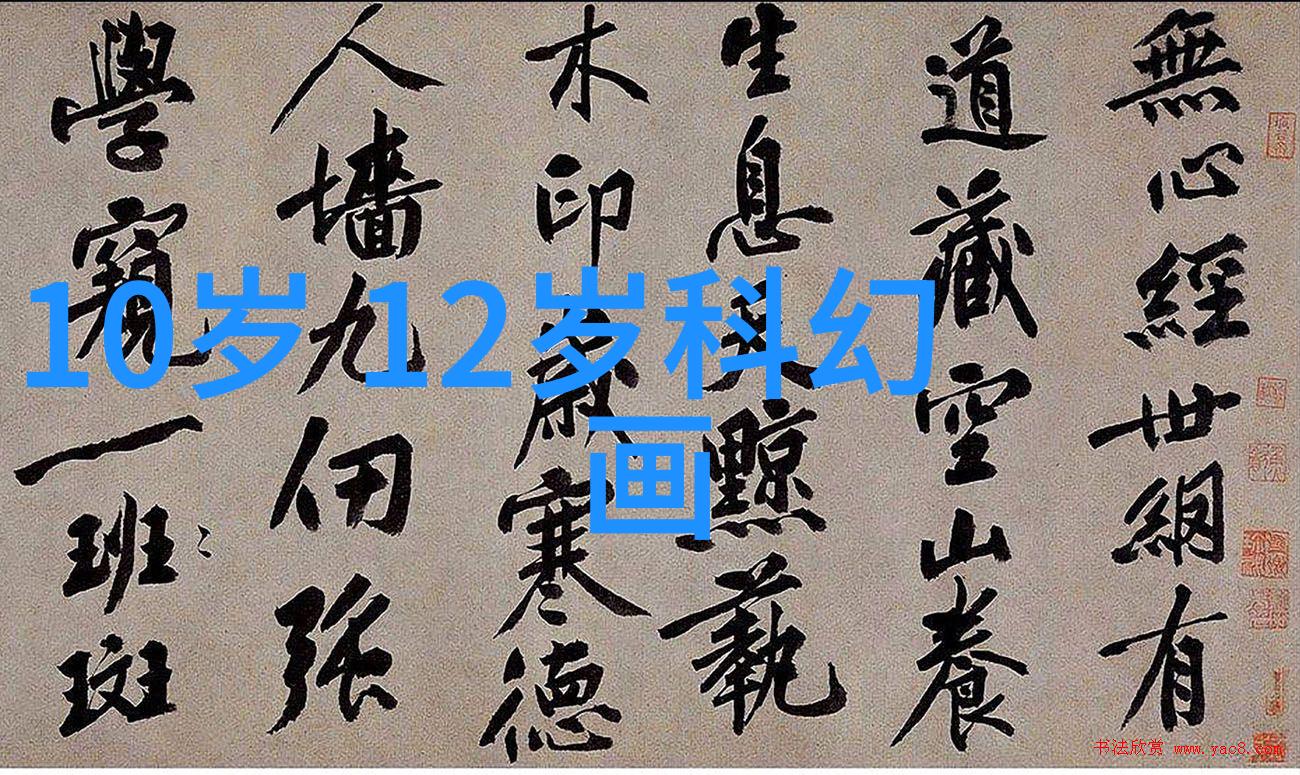 無心經世網有
道藏空山養
生息天黥藝
木印歲寒德
人墻九仞強
學窺一班斑
10岁 12岁科幻
画
书法欣赏 www.yac8.com